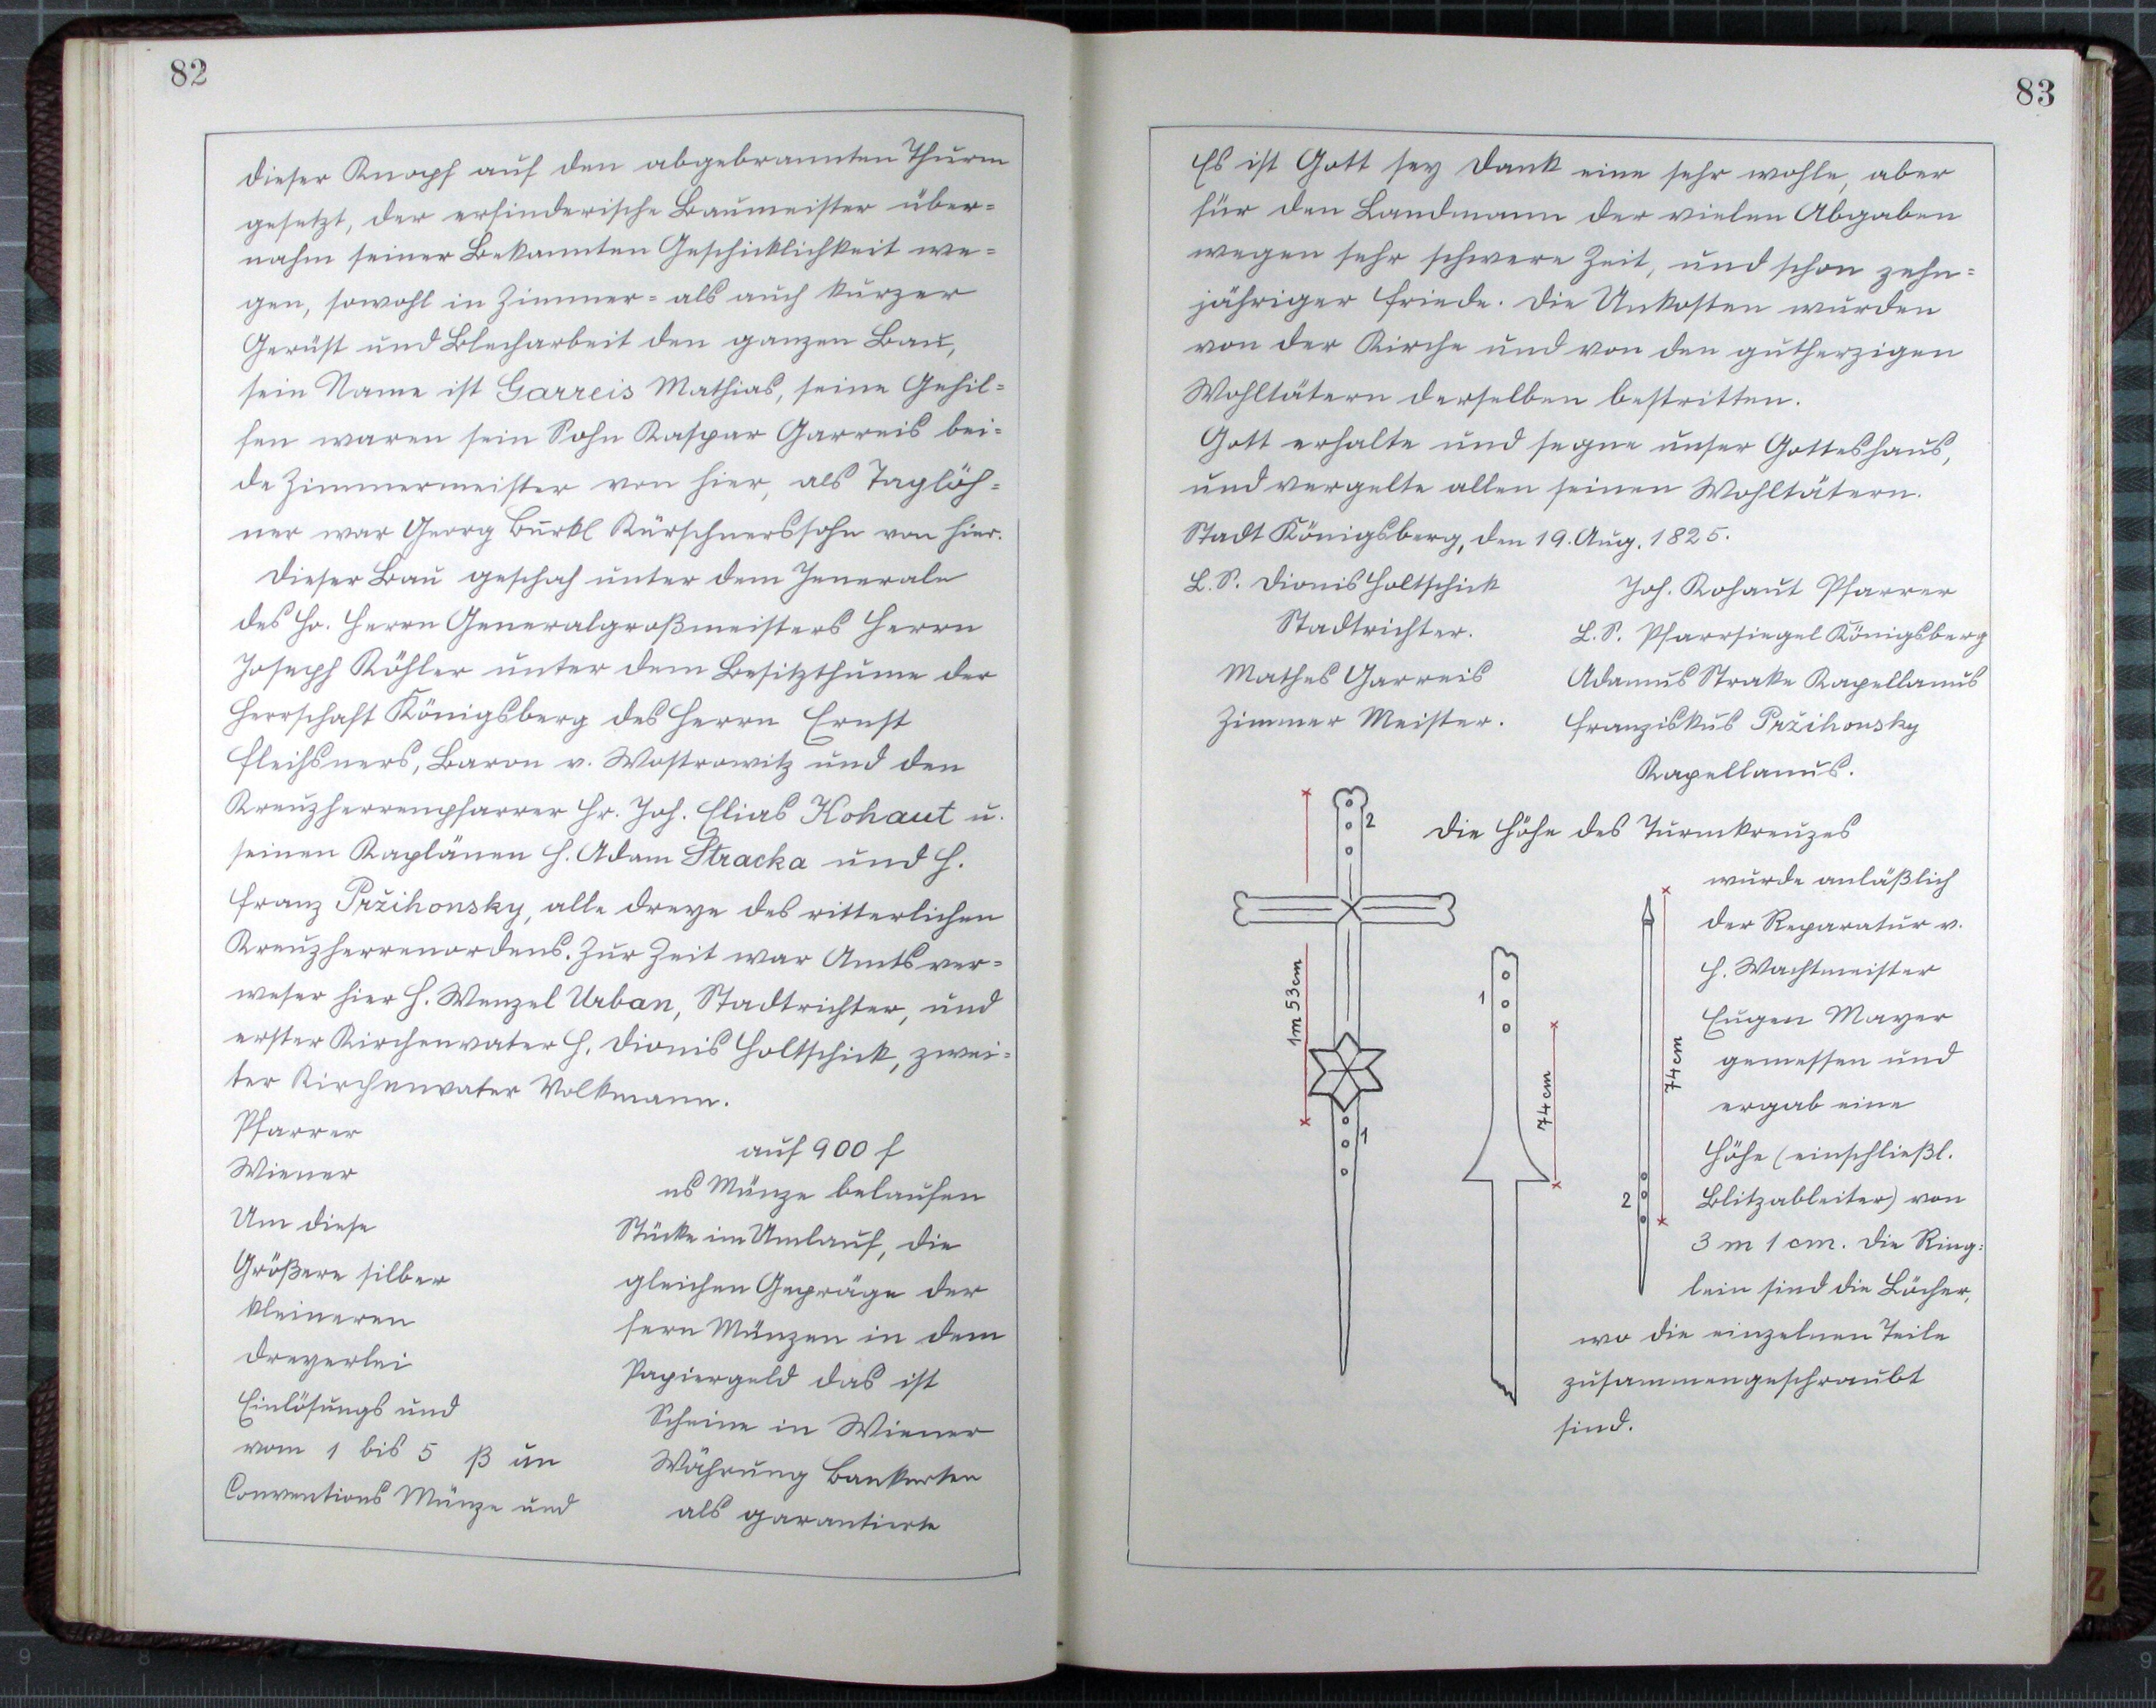 82
dieser Knopf auf den abgebrannten Thurm
gesetzt, der erfinderische Baumeister über=
nahm seiner Bekannten Geschicklichkeit we=
gen, sowohl in Zimmer= als auch kurzer
Gerüst und Blecharbeit den ganzen Bau,
sein Name ist Garreis Mathias, seine Gehil=
fen waren sein Sohn Kaspar Garreis bei=
de Zimmermeister von hier, als Taglöh=
ner war Georg Bürkl Kürschnerssohn von hier.
Dieser Bau geschah unter dem Jenerale
des Hr. Herrn Generalgroßmeisters Herrn
Joseph Köhler unter dem Besitzthume der
Herrschaft Königsberg des Herrn Ernst
Fleihsners, Baron v. Wostrowitz und den
Kreuzherrenpfarrer Hr. Joh. Elias Kohaut u.
seinen Kaplänen H. Adam Stracka und H.
Franz Pržihonsky, alle dreye des ritterlichen
Kreuzherrenordens. Zur Zeit war Amtsver=
weser hier H. Wenzel Urban, Stadtrichter, und
erster Kirchenvater H. Dionis Holtschick, zwei=
ter Kirchenvater Volkmann.
Pfarrer
auf 900 f
Wiener
us Münze belaufen
Um diese
Stücke im Umlauf, die
Größere silber
gleichen Gepräge der
kleineren
fern Münzen in dem
dreyerlei
Papiergeld das ist
Einlösungs und
Scheine in Wiener
vom 1 bis 5 ß un
Währung Bankorten
Conventions Münze und
als garantierte
83
Es ist Gott sey Dank eine sehr wohle, aber
für den Landmann der vielen Abgaben
wegen sehr schwere Zeit, und schon zehn=
jähriger Friede. Die Unkosten wurden
von der Kirche und von den gutherzigen
Wohltätern derselben bestritten.
Gott erhalte und segne unser Gotteshaus,
und vergelte allen seinen Wohltätern.
Stadt Königsberg, den 19. Aug. 1825.
L. S. Dionis Holtschick
Joh. Kohaut Pfarrer
Stadtrichter.
L. S. Pfarrsiegel Königsberg
Mathes Garreis
Adamus Strake Kapellanus
Zimmer Meister.
Franziskus Pržihonsky
Kapellanus.
2
Die Höhe des Turmkreuzes
wurde anläßlich
der Reparatur v.
H. Wachtmeister
1m 53cm
1
Eugen Mayer
gemessen und
74cm
74cm
ergab eine
1
Höhe (einschließl.
2
Blitzableiter) von
3 m 1 cm. Die Ring=
lein sind die Löcher,
wo die einzelnen Teile
zusammengeschraubt
sind.